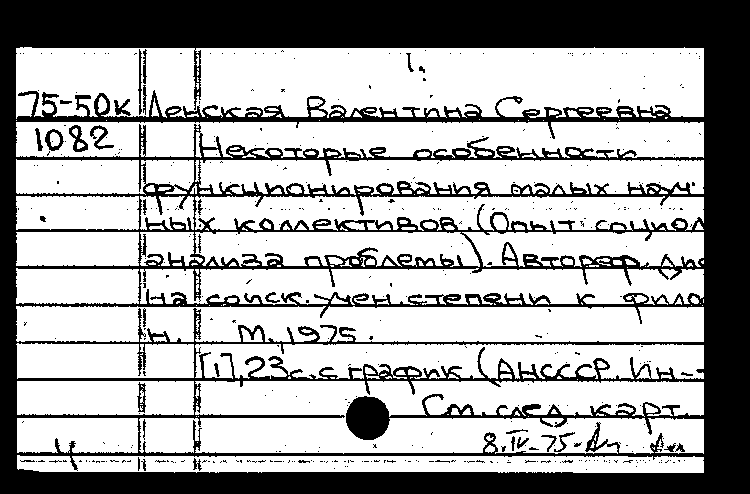 1.
75-50к Ленская Валентина Сергеевна
1082 Некоторые особенности
функционирования малых науч-
ных коллективов. (Опыт социол
анализа проблемы). Автореф. дис
на соиск. учен. степени к фило
н. М., 1975.
[1], 23 с. с график. (АН СССР. Ин-т
См. след. карт.
8.IV-75-
ч